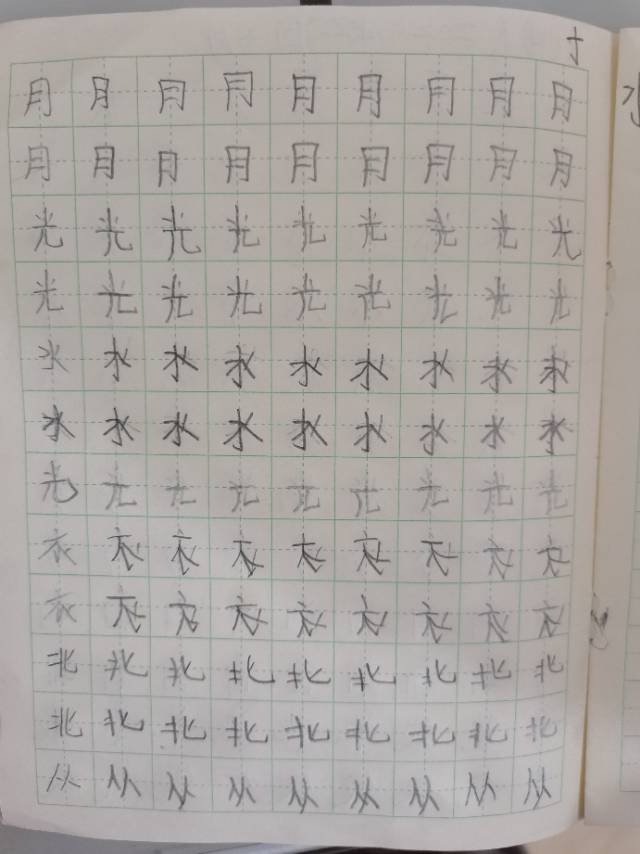 月月月月月月月月月
月月月月月月月月月
光光光光光光光光光
光光光光光光光光光
水水水水水水水水水
水水水水水水水水水
光光光光光光光光光
衣衣衣衣衣衣衣衣衣
衣衣衣衣衣衣衣衣衣
北北北北北北北北北
北北北北北北北北北
从从从从从从从从从